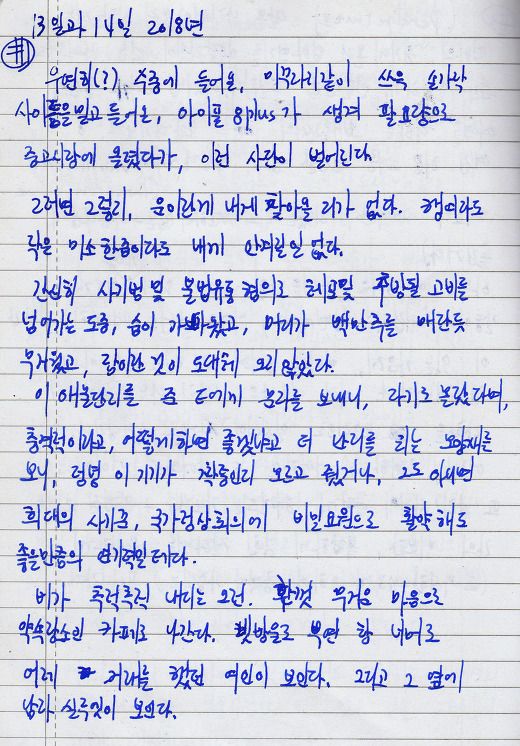 13일과 14일 2018년
#1
우연히(?), 수중에 들어온, 미꾸라지같이 쓰윽 손가락
사이틈을 밀고 들어온, 아이폰 8 Plus가 생겨 팔 요량으로
중고시장에 올렸다가, 이런 사단이 벌어진다.
그러면 그렇지, 운이란게 내게 찾아올 리가 없다. 행여라도
작은 미소 한줌이라도 내게 안겨줄일 없다.
간신히 사기범 및 불법유통 혐의로 체포및 추방될 고비를
넘어가는 도중, 숨이 가빠왔고, 머리가 백만추를 매단듯
무거웠고, 잠이란 것이 도대체 오지 않았다.
이 애물단지를 준 E에게 문자를 보내니, 자기도 몰랐다며,
충격적이라고, 어떻게하면 좋겠냐고 더 난리를 치는 모양새를
보니, 정녕 이 기기가 장물인지 모르고 줬거나, 그도 아니면
희대의 사기꾼, 국가정상회의에 비밀요원으로 활약해도
좋을만큼의 연기력일테다.
비가 추적추적 내리는 오전. 한껏 무거운 마음으로
약속장소인 카페로 나간다. 빗방울로 뿌연 창 너머로
어제 거래를 했던 여인이 보인다. 그리고 그 옆에
남자 실루엣이 보인다.